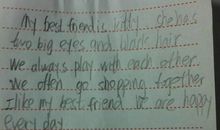 My best friend is kitty. she has
two big eyes and black hair.
We always play with each other.
We often go shopping together
I like my best friend. We are happy
every day